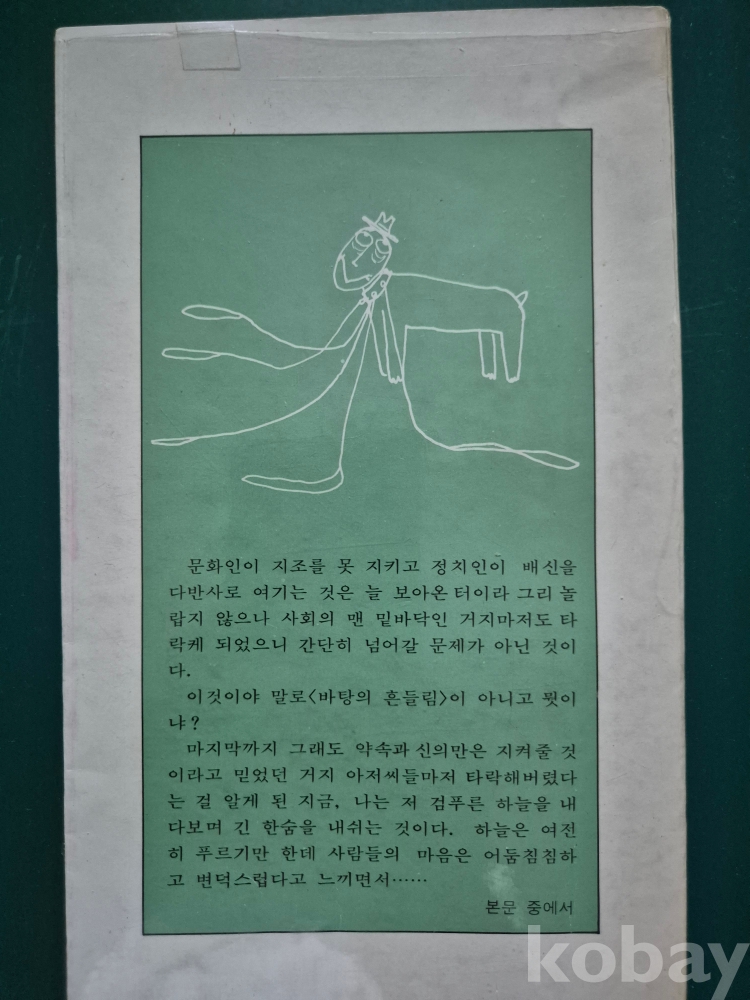 문화인이 지조를 못 지키고 정치인이 배신을
다반사로 여기는 것은 늘 보아온 터이라 그리 놀
랍지 않으나 사회의 맨 밑바닥인 거지마저도 타
락케 되었으니 간단히 넘어갈 문제가 아닌 것이
다.
이것이야 말로〈바탕의 흔들림〉이 아니고 뭣이
냐?
마지막까지 그래도 약속과 신의만은 지켜줄 것
이라고 믿었던 거지 아저씨들마저 타락해버렸다
는 걸 알게 된 지금, 나는 저 검푸른 하늘을 내
다보며 긴 한숨을 내쉬는 것이다. 하늘은 여전
히 푸르기만 한데 사람들의 마음은 어둠침침하
고 변덕스럽다고 느끼면서……
본문 중에서
kobay